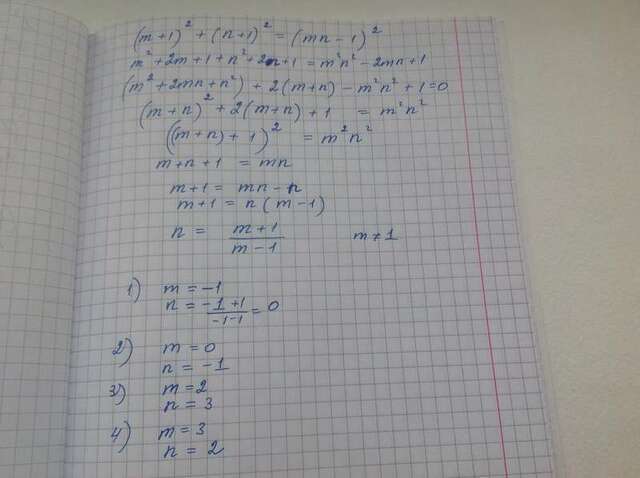 (m+1)² + (n+1)² = (mn-1)²
m² + 2m + 1 + n² + 2n + 1 = m²n² - 2mn + 1
(m² + 2mn + n²) + 2(m+n) - m²n² + 1 = 0
(m+n)² + 2(m+n) + 1 = m²n²
((m+n) + 1)² = m²n²
m+n+1 = mn
m+1 = mn - n
m+1 = n(m-1)
n = (m+1)/(m-1) m ≠ 1
1) m = -1
n = (-1+1)/(-1-1) = 0
2) m = 0
n = -1
3) m = 2
n = 3
4) m = 3
n = 2